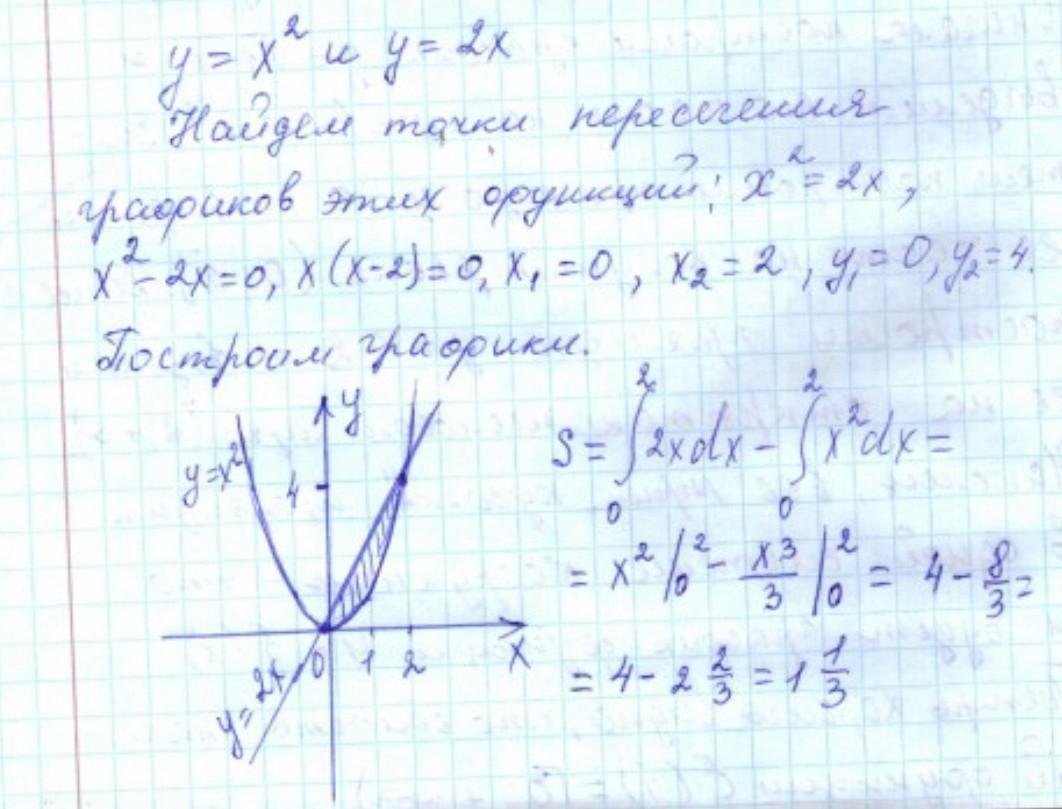 y = x² и y = 2x
Найдем точки пересечения
графиков этих функций: x² = 2x,
x² - 2x = 0, x(x-2) = 0, x₁ = 0, x₂ = 2, y₁ = 0, y₂ = 4.
Построим графики.
y
y = x²
4
0 1 2 x
y = 2x
S = ∫₀² 2xdx - ∫₀² x²dx =
= x² |₀² - x³/3 |₀² = 4 - 8/3 =
= 4 - 2 2/3 = 1 1/3